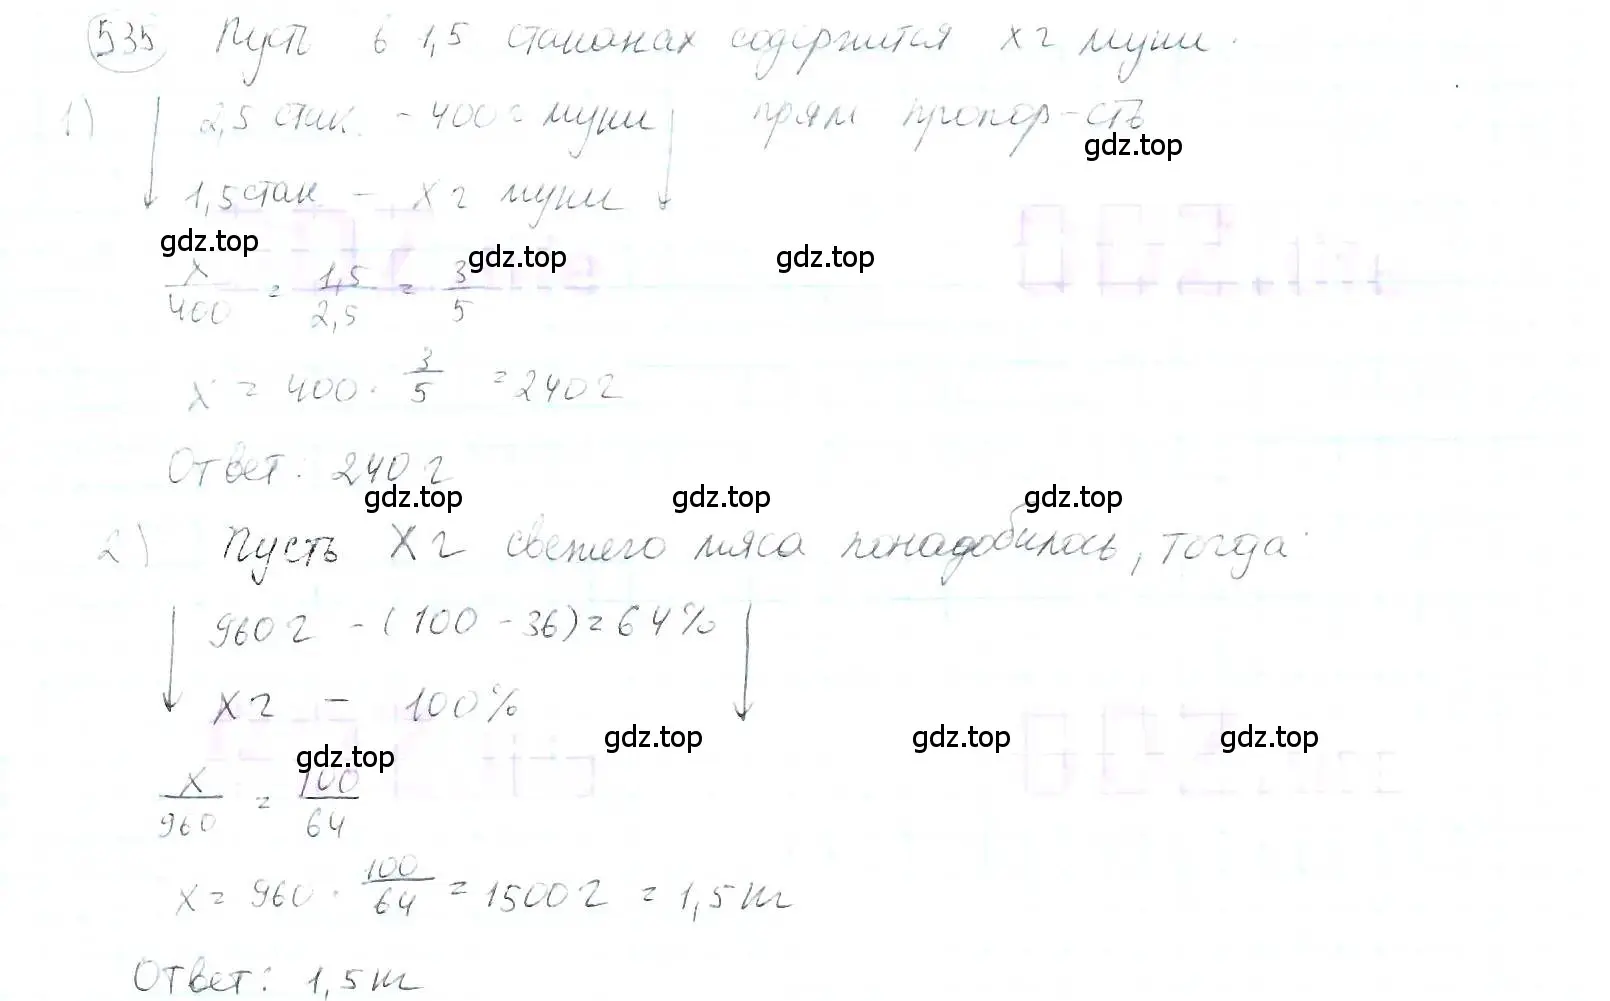 535 Пусть в 1,5 стаканах содержится x г муки.
1) 2,5 стак. - 400 г муки прям пропор-сть
gdz.top
1,5 стак - x г муки
gdz.top gdz.top gdz.top
x/400 = 1,5/2,5 = 3/5
x = 400 · 3/5 = 240 г
Ответ: 240 г
gdz.top gdz.top gdz.top
2) Пусть x г свежего мяса понадобилось, тогда
960 г - (100 - 36) = 64%
x г - 100%
gdz.top gdz.top gdz.top gdz.top
x/960 = 100/64
x = 960 · 100/64 = 1500 г = 1,5 кг
Ответ: 1,5 кг